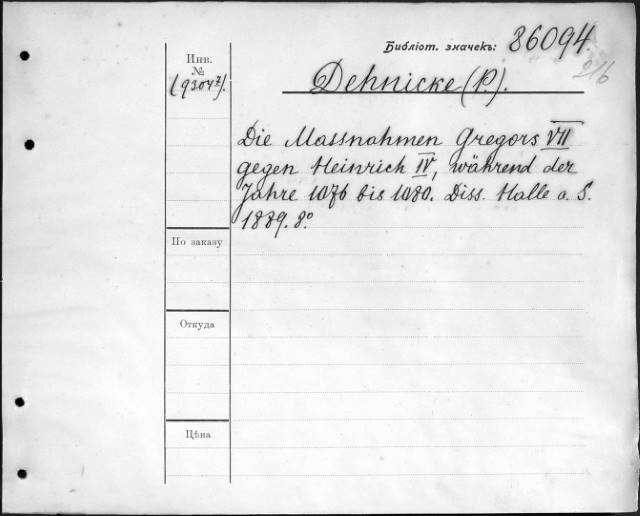 Библіот. значекъ: 86094.
216
Инв.
№
(93047).
Dehnicke (P.).
Die Massnahmen Gregors VII
gegen Heinrich IV, während der
Jahre 1076 bis 1080. Diss. Halle a. S.
1889. 8º
По заказу
Откуда
Цѣна